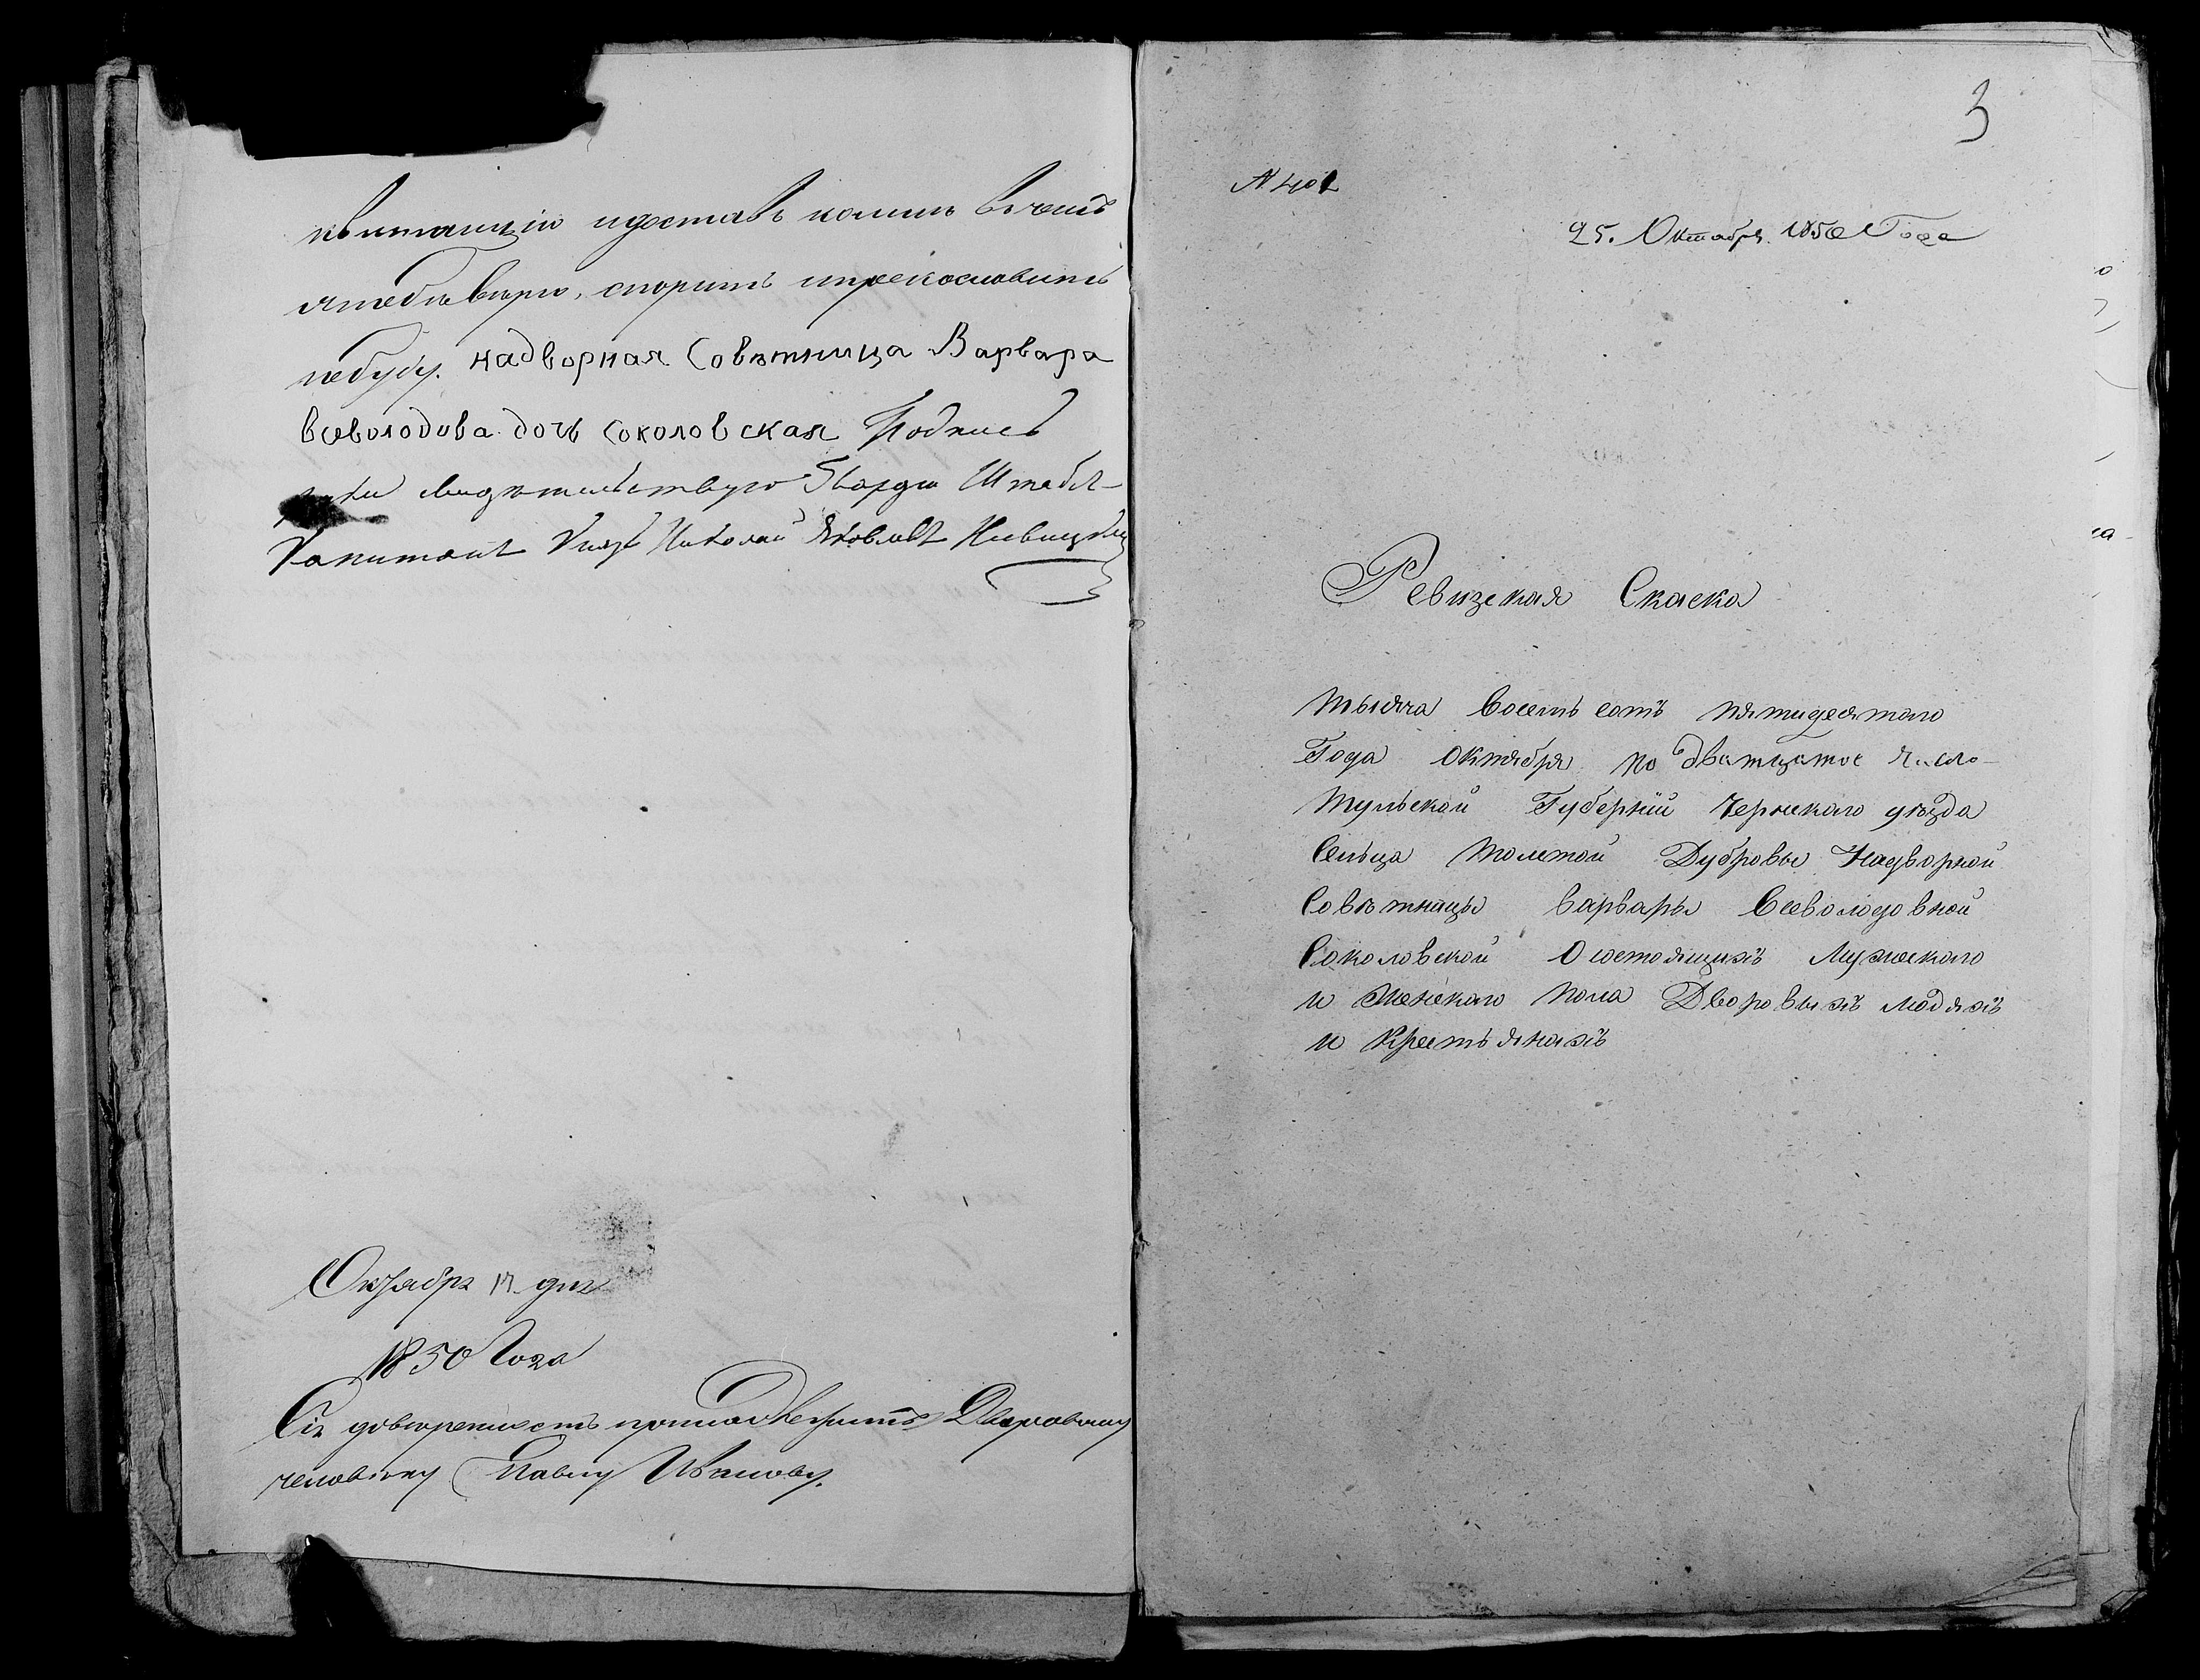 квитанцію и доставь комнѣ въ чемъ
я тебѣ вѣрю, спорить и прекословить
небуду. надворная Совѣтница Варвара
всеволодова дочь соколовская Подпись
свидѣтельствую Гвардіи Штабсъ-
Капитанъ Князь Николай Яковлевъ
Октября 17 дня
1850 Года
Сія довѣренность принадлежитъ Дворовому
человѣку Павлу Иванову.
3
№ 402
25. Октября. 1850 Года
Ревизская Скаска
тысяча восемь сотъ пятидесятого
Года Октября по дватцатое число
Тульской Губерніи Чернскаго уѣзда
Сельца Толстой Дубровы Надворной
Совѣтницы Варвары Всеволодовной
Соколовской О состоящихъ Мужескаго
и Женскаго пола Дворовыхъ людяхъ
и Крестьянахъ